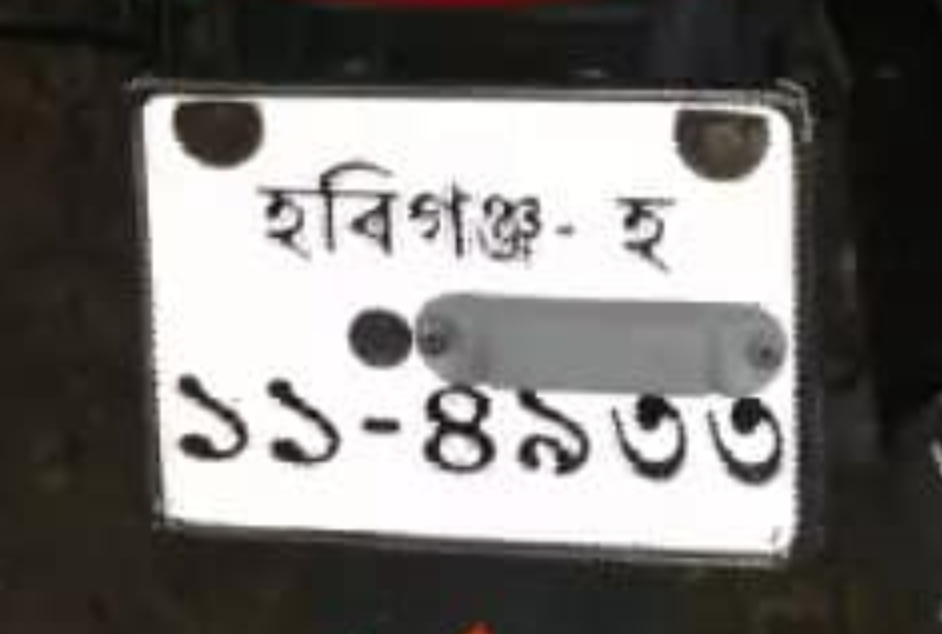 হবিগঞ্জ- হ
১১-৪৯৩৩